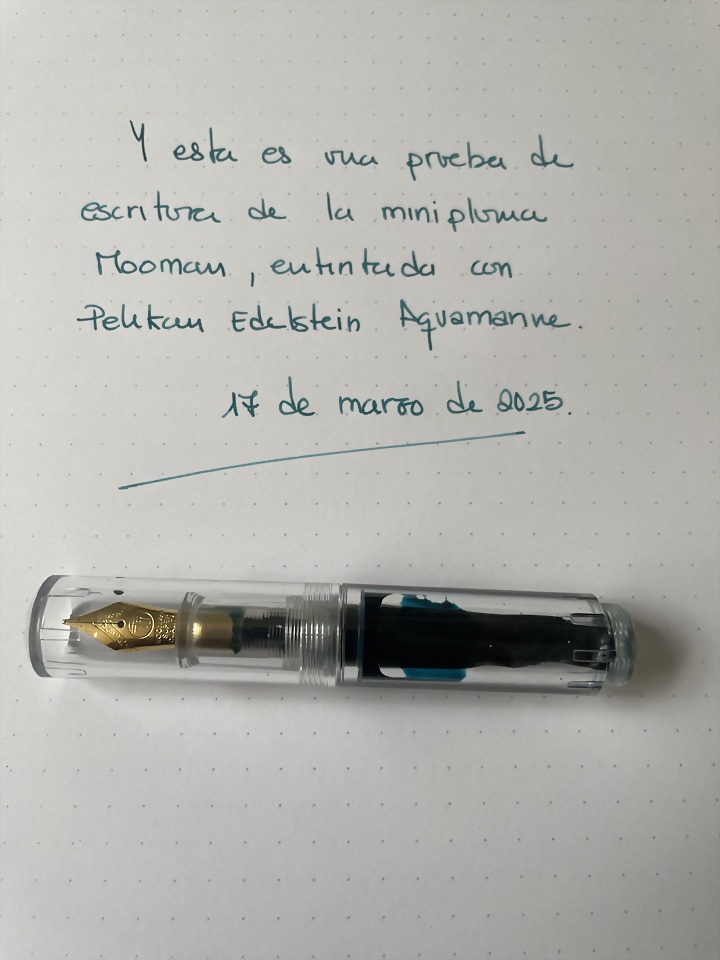 Y esta es una prueba de
escritura de la mini pluma
Mooman, entintada con
Pelikan Edelstein Aquamarine.
17 de marzo de 2025.